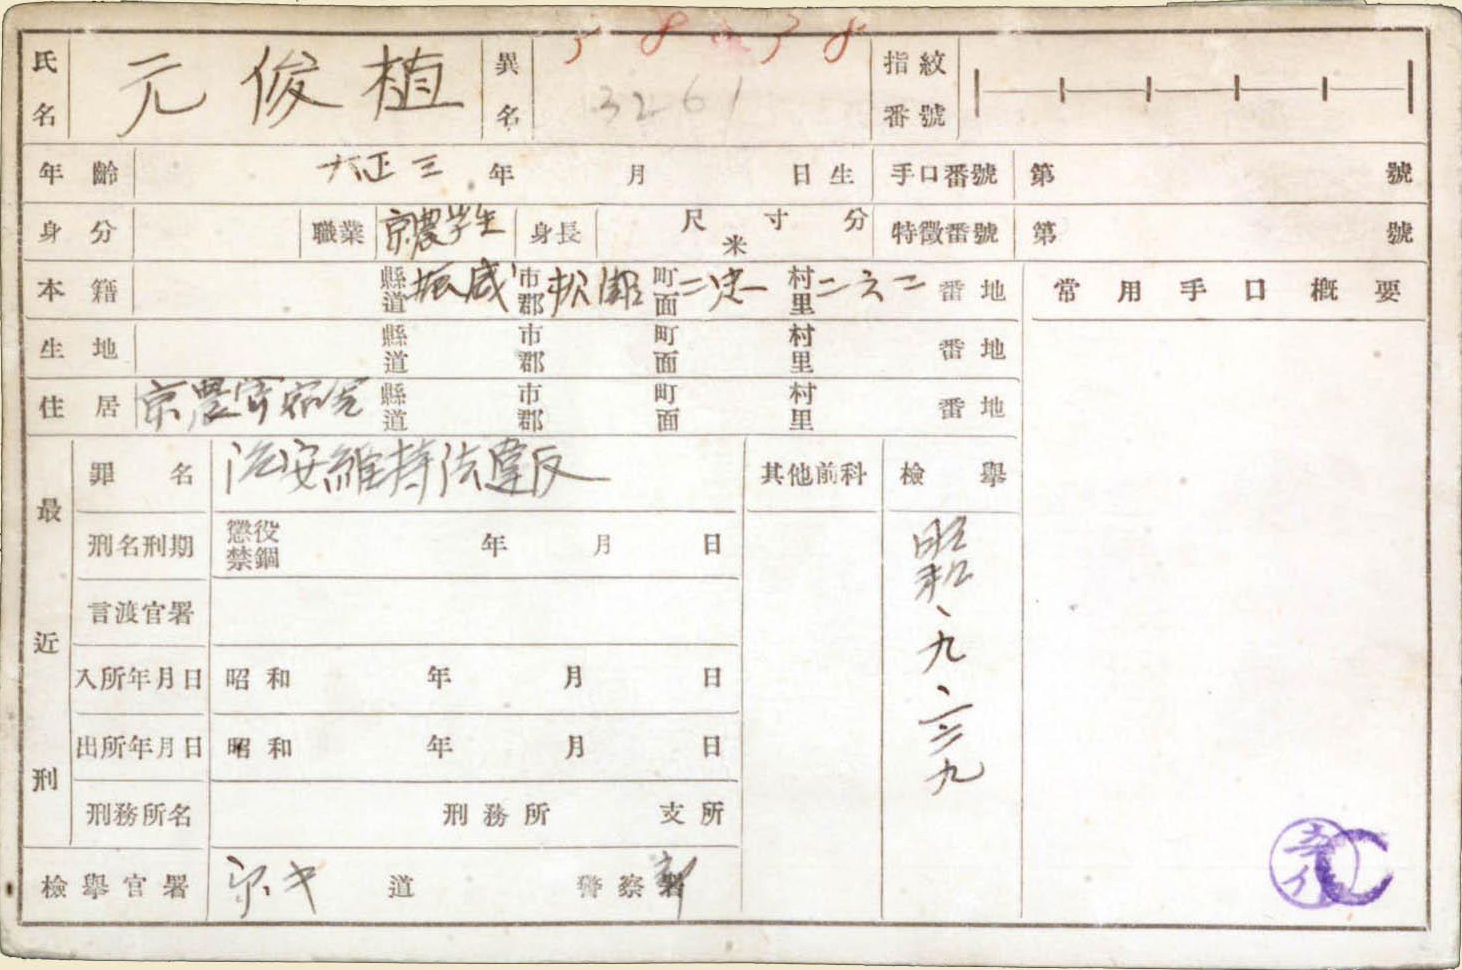 氏名 元俊植 異名 3261 指紋番號
年齡 大正三年 月 日生 手口番號 第 號
身分 職業 京農学生 身長 尺 寸 分 米 特徵番號 第 號
本籍 縣道 振威 市郡 松炭 町面 二忠一 村里 二六二 番地 常用手口槪要
生地 縣道 市郡 町面 村里 番地
住居 京農寄宿舍 縣道 市郡 町面 村里 番地
最近刑
罪名 治安維持法違反 其他前科 檢擧
刑名刑期 懲役禁錮 年 月 日 昭和、九、
言渡官署
入所年月日 昭和 年 月 日
出所年月日 昭和 年 月 日
刑務所名 刑務所 支所
檢擧官署 道 警察署